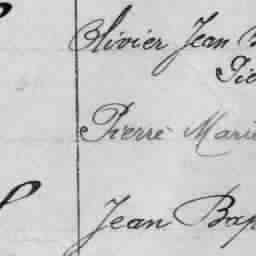 Olivier Jean
Pie
Pierre Marie
Jean Bap